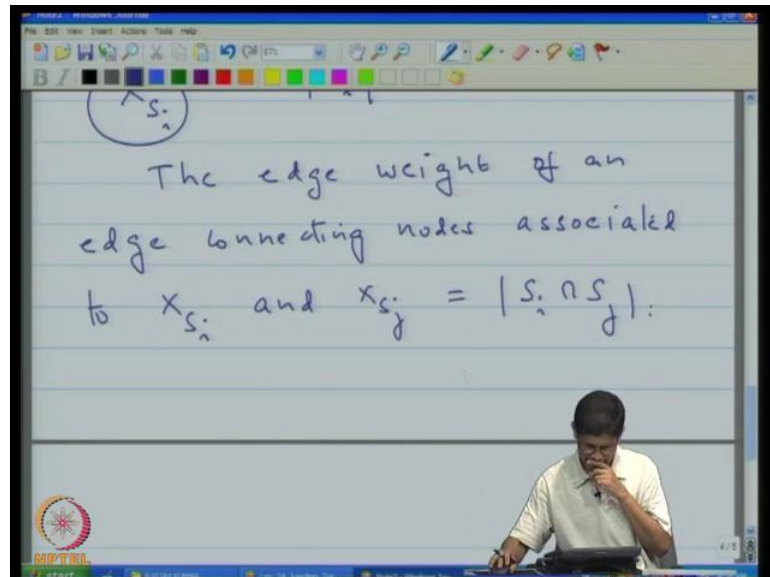 File Edit View Insert Actions Tools Help
B I
x_{S_i}
The edge weight of an
edge connecting nodes associated
to x_{S_i} and x_{S_j} = |S_i ∩ S_j|.
4/5
NPTEL